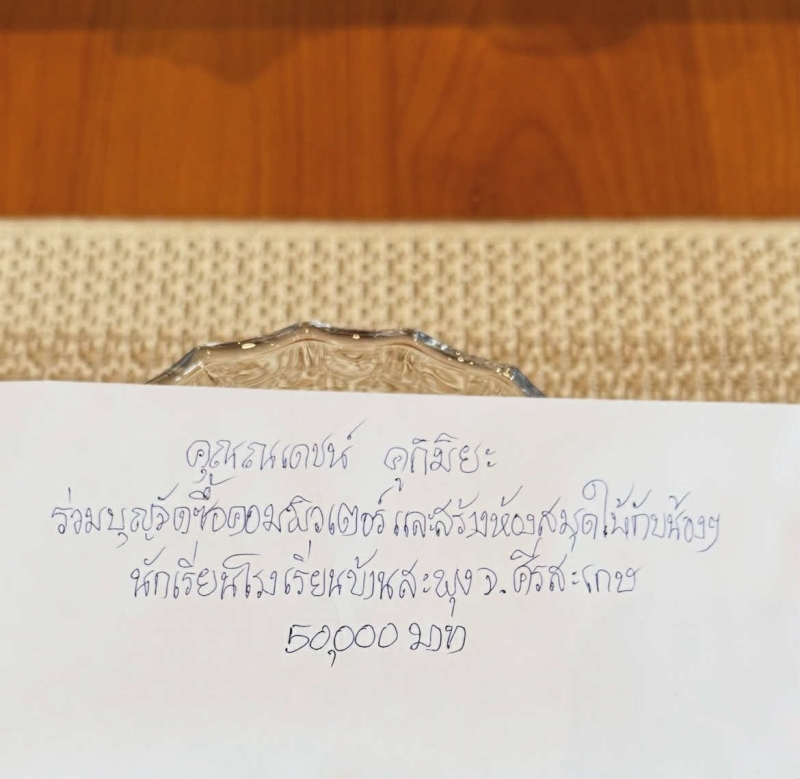 คุณณเดชน์ คูกิมิยะ
ร่วมบุญจัดซื้อคอมพิวเตอร์ และสร้างห้องสมุดให้กับน้องๆ
นักเรียนโรงเรียนบ้านสะพุง จ.ศรีสะเกษ
50,000 บาท